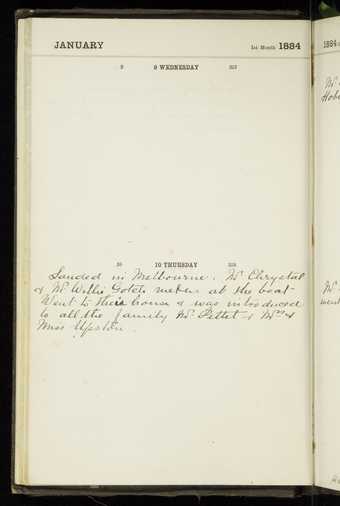 JANUARY 1st Month 1884
9 9 WEDNESDAY 357
10 10 THURSDAY 356
Landed in Melbourne. Mr Chrystal
& Mr Willie Gotch met me at the boat
Went to their house & was introduced
to all the family Mr Pettet & Mrs &
Miss Upston.
1884
Mr
went